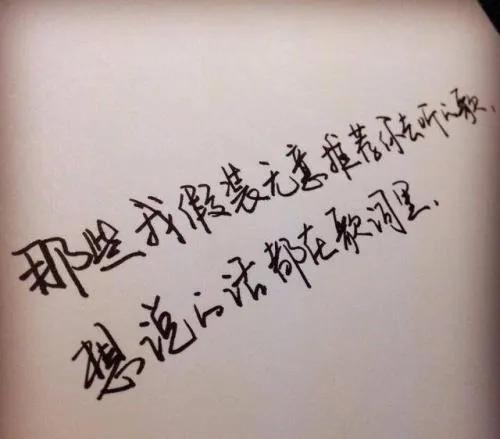 那些我假装无意推荐你去听的歌，
想说的话都在歌词里．